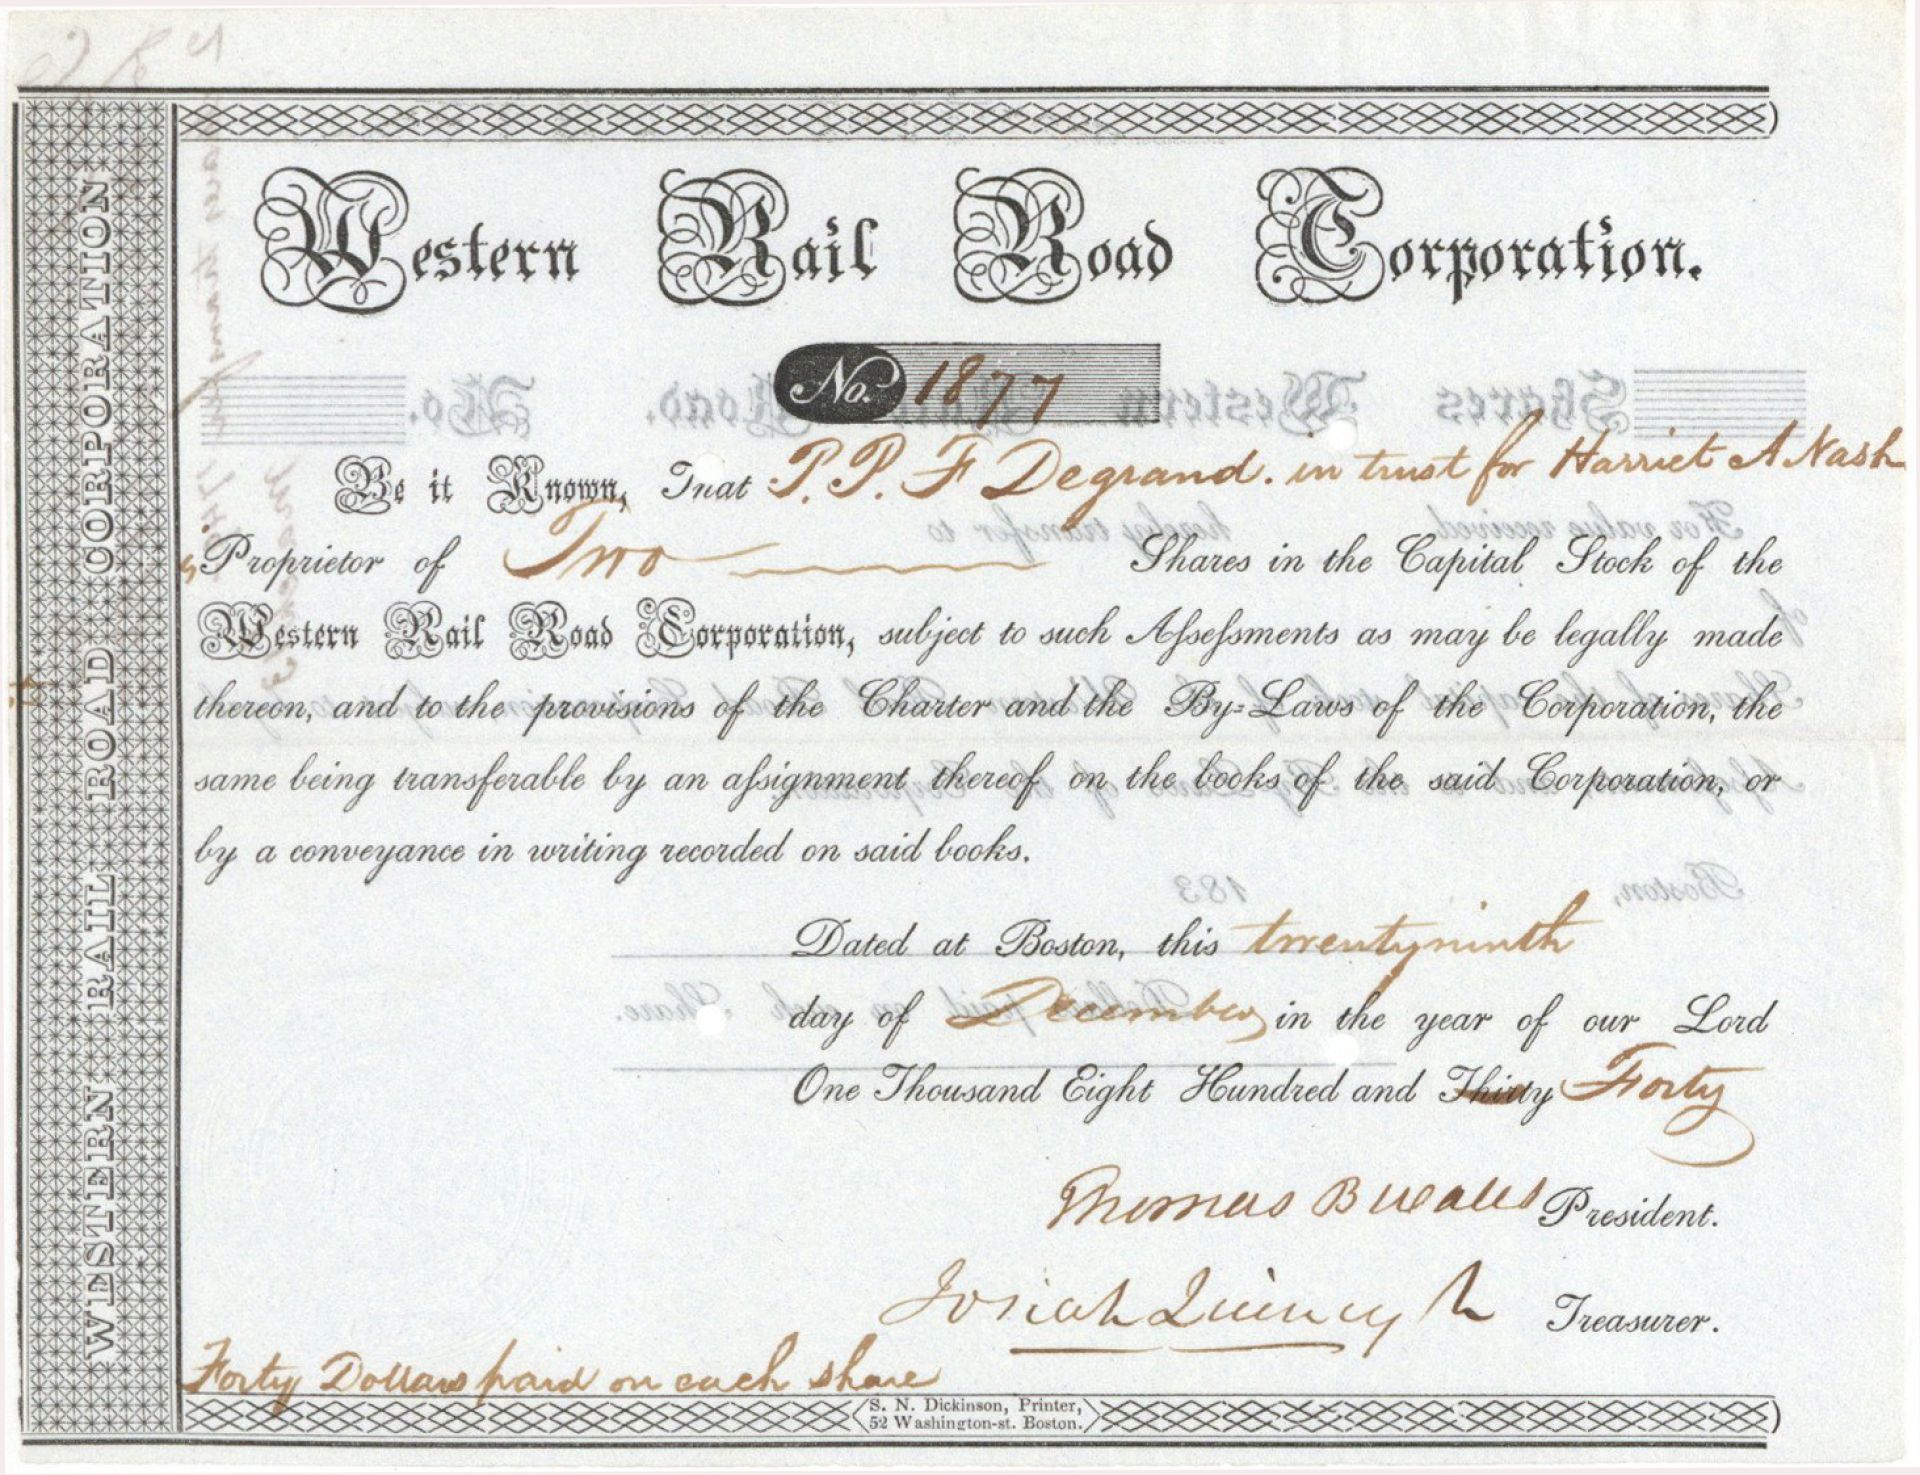 Western Rail Road Corporation.
No. 1877
Be it Known, That P. P. F Degrand. in trust for Harriet A Nash
is Proprietor of Two Shares in the Capital Stock of the
Western Rail Road Corporation, subject to such Aſseſsments as may be legally made
thereon, and to the provisions of the Charter and the By=Laws of the Corporation, the
same being transferable by an aſsignment thereof on the books of the said Corporation, or
by a conveyance in writing recorded on said books.
Dated at Boston, this twentyninth
day of December in the year of our Lord
One Thousand Eight Hundred and Thirty Forty
Thomas B Wales President.
Josiah Quincy Jr Treasurer.
Forty Dollars paid on each share
S. N. Dickinson, Printer,
52 Washington-st. Boston.
WESTERN RAIL ROAD CORPORATION